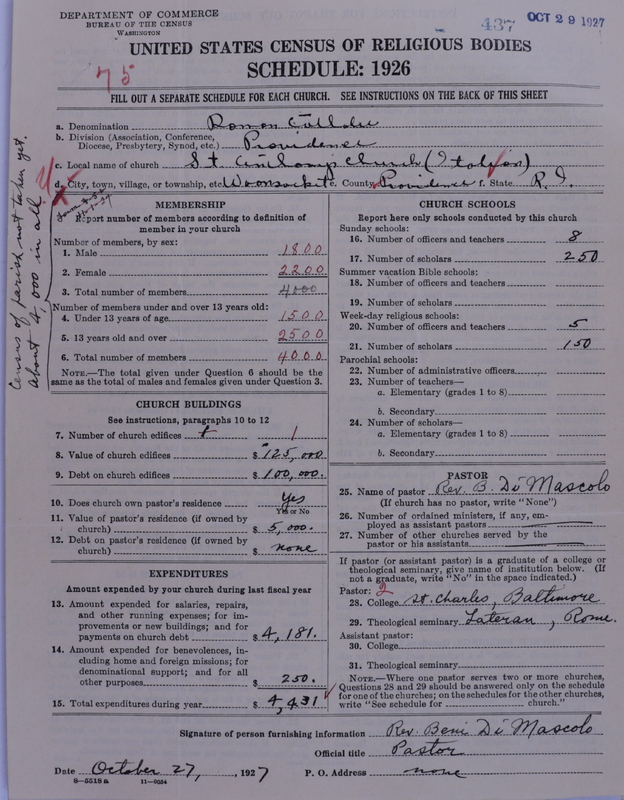 DEPARTMENT OF COMMERCE
BUREAU OF THE CENSUS
WASHINGTON
437 OCT 29 1927
UNITED STATES CENSUS OF RELIGIOUS BODIES
SCHEDULE: 1926
75
FILL OUT A SEPARATE SCHEDULE FOR EACH CHURCH. SEE INSTRUCTIONS ON THE BACK OF THIS SHEET
a. Denomination Roman Catholic
b. Division (Association, Conference, Diocese, Presbytery, Synod, etc.) Providence
c. Local name of church St. Anthony Church (Italian)
d. City, town, village, or township, etc. Woonsocket e. County Providence f. State R. I.
Census of parish not taken yet.
about 4,000 in all
MEMBERSHIP
Report number of members according to definition of
member in your church
Number of members, by sex:
1. Male 1800
2. Female 2200
3. Total number of members 4000
Number of members under and over 13 years old:
4. Under 13 years of age 1500
5. 13 years old and over 2500
6. Total number of members 4000
NOTE.—The total given under Question 6 should be
same as the total of males and females given under Question 3.
CHURCH BUILDINGS
See instructions, paragraphs 10 to 12
7. Number of church edifices 1
8. Value of church edifices $125,000
9. Debt on church edifices $100,000.
10. Does church own pastor's residence Yes
Yes or No
11. Value of pastor's residence (if owned by
church) $5,000.
12. Debt on pastor's residence (if owned by
church) $none
EXPENDITURES
Amount expended by your church during last fiscal year
13. Amount expended for salaries, repairs,
and other running expenses; for im-
provements or new buildings; and for
payments on church debt $4,181.
14. Amount expended for benevolences, in-
cluding home and foreign missions; for
denominational support; and for all
other purposes $250.
15. Total expenditures during year $4,431
CHURCH SCHOOLS
Report here only schools conducted by this church
Sunday schools:
16. Number of officers and teachers 8
17. Number of scholars 250
Summer vacation Bible schools:
18. Number of officers and teachers
19. Number of scholars
Week-day religious schools:
20. Number of officers and teachers 5
21. Number of scholars 150
Parochial schools:
22. Number of administrative officers
23. Number of teachers—
a. Elementary (grades 1 to 8)
b. Secondary
24. Number of scholars—
a. Elementary (grades 1 to 8)
b. Secondary
PASTOR
25. Name of pastor Rev. B. Di Mascolo
(If church has no pastor, write "None")
26. Number of ordained ministers, if any, em-
ployed as assistant pastors
27. Number of other churches served by the
pastor or his assistants
If pastor (or assistant pastor) is a graduate of a college or
theological seminary, give name of institution below. (If
not a graduate, write "No" in the space indicated.)
Pastor: 2
28. College St. Charles, Baltimore
29. Theological seminary Lateran, Rome.
Assistant pastor:
30. College
31. Theological seminary
NOTE.—Where one pastor serves two or more churches,
Questions 28 and 29 should be answered only on the schedule
for one of the churches; on the schedules for the other churches,
write "See schedule for church."
Signature of person furnishing information Rev. Beni Di Mascolo
Official title Pastor
Date October 27, 1927 P. O. Address none
8-5518a 11-9054